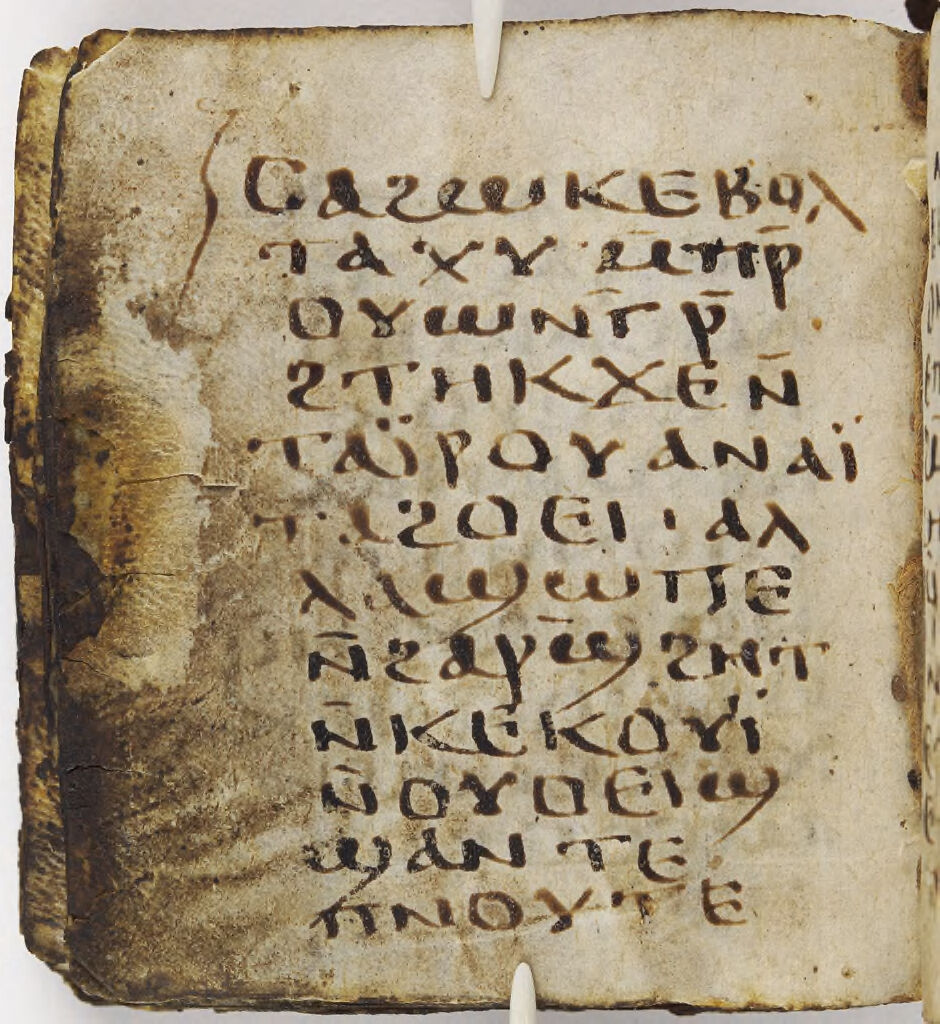 Ⲥⲁϩⲱⲕ ⲉⲃⲟⲗ
ⲧⲁⲭⲩ· ⲙ̅ⲡⲣ̅
ⲟⲩⲱⲛ̅ⲅⲣ̅
ϩⲧⲏⲕ ϫⲉ ⲛ̅
ⲧⲁⲓ̈ⲣⲟⲩ ⲁⲛⲁⲓ̈
ⲧⲁϩⲟⲉⲓ · ⲁⲗ
ⲗⲁ ϣⲱⲡⲉ
ⲛ̅ϩⲁⲣϣ̅ϩⲏⲧ
ⲛ̅ⲕⲉⲕⲟⲩⲓ̈
ⲛ̅ⲟⲩⲟⲉⲓϣ
ϣⲁⲛⲧⲉ
ⲡⲛⲟⲩⲧⲉ